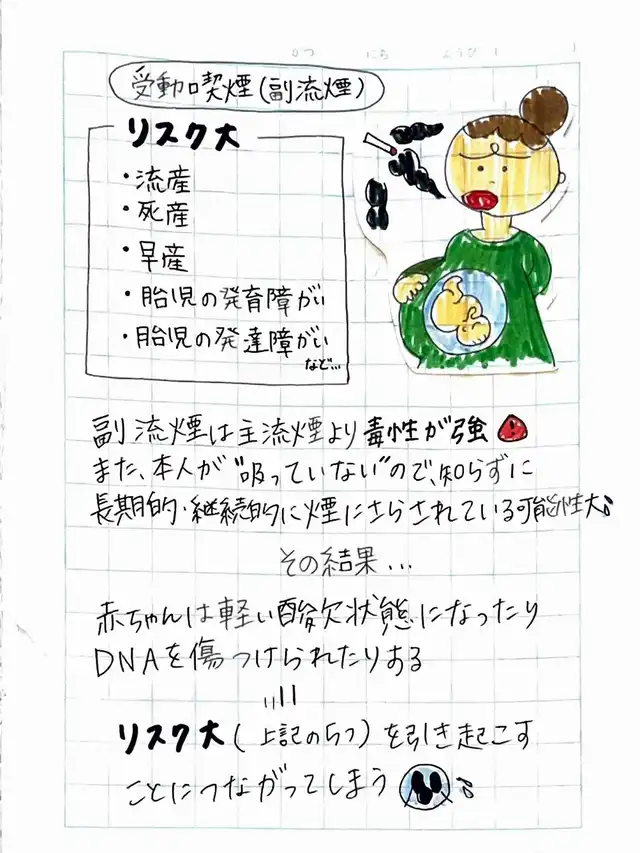 がつ にち ようび
受動喫煙(副流煙)
リスク大
・流産
・死産
・早産
・胎児の発育障がい
・胎児の発達障がい
など…
副流煙は主流煙より毒性が強!
また、本人が"吸っていない"ので、知らずに
長期的・継続的に煙にさらされている可能性大
その結果…
赤ちゃんは軽い酸欠状態になったり
DNAを傷つけられたりする
リスク大(上記の5つ)を引き起こす
ことにつながってしまう